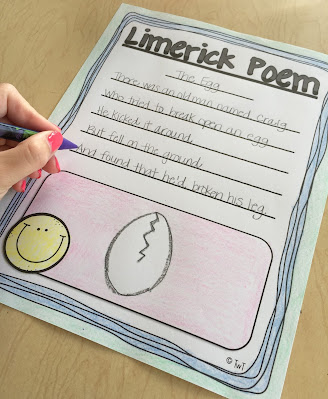 Limerick Poem
The Egg
There was an old man named craig
Who tried to break open an egg
He kicked it around,
But fell on the ground,
And found that he'd broken his leg
© TWT